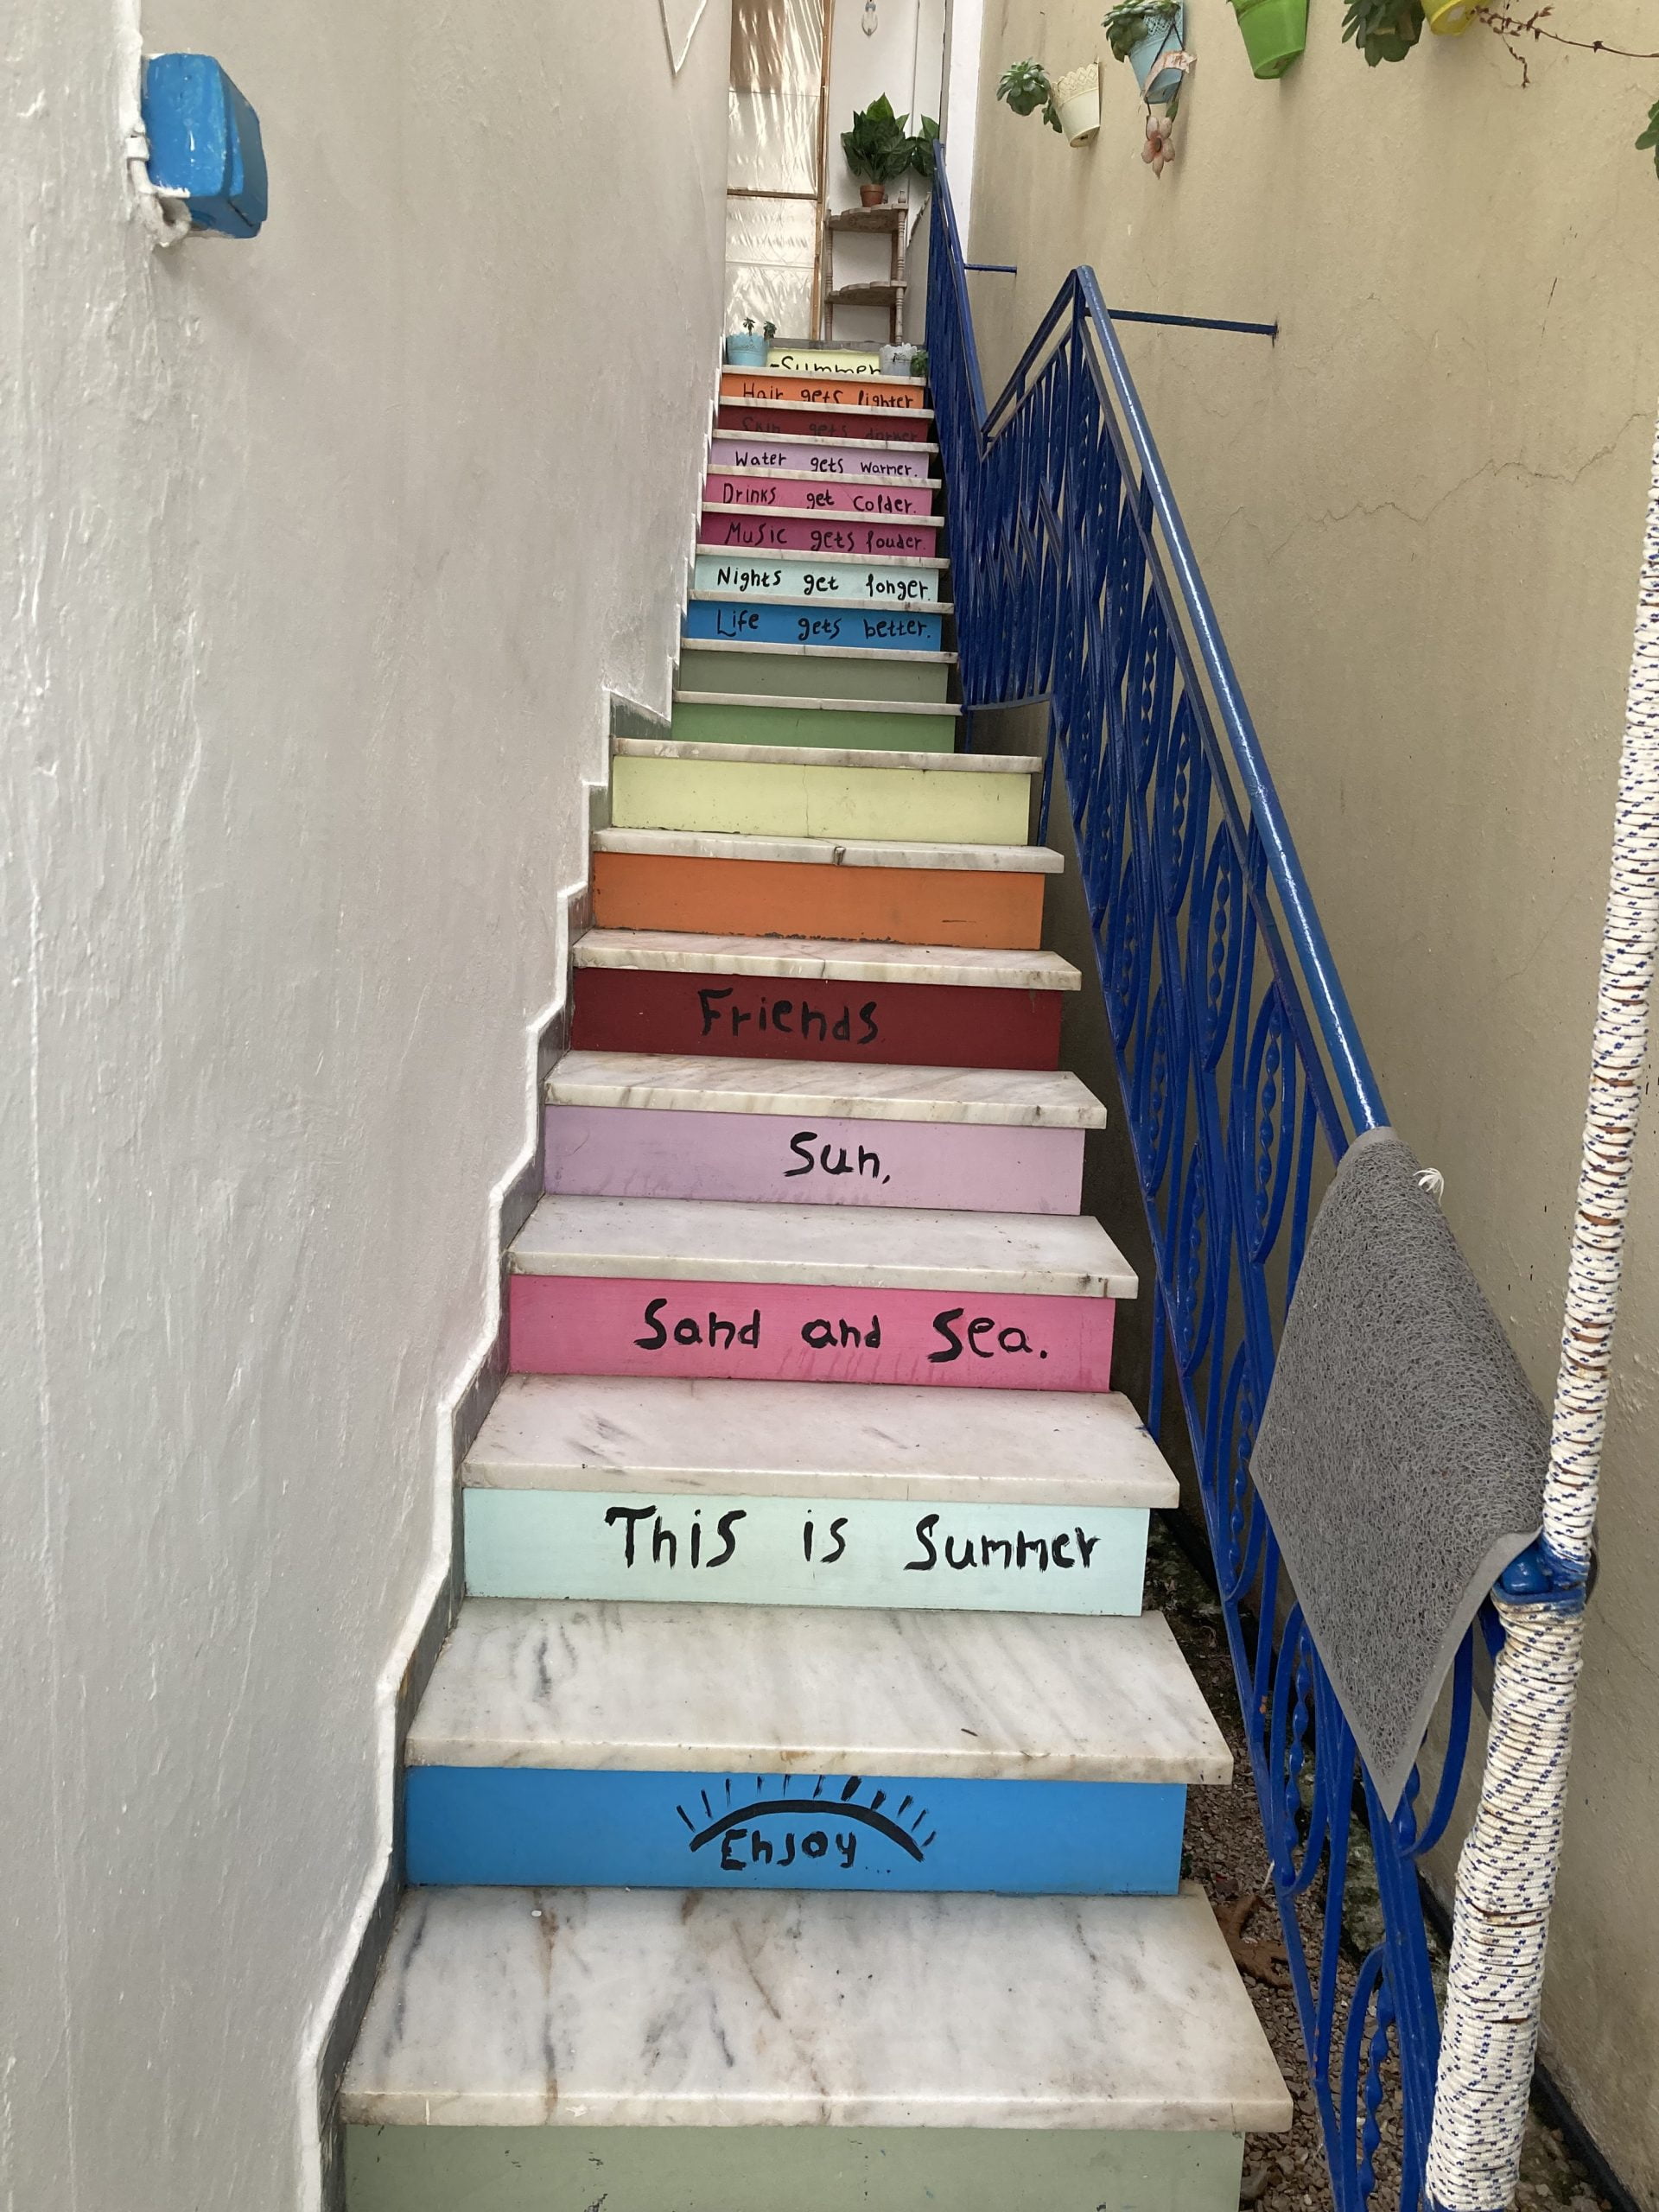 -Summer
Hair gets lighter
Skin gets darker
Water gets warmer.
Drinks get Colder.
Music gets louder.
Nights get longer.
Life gets better.
Friends
Sun,
Sand and Sea.
This is Summer
Enjoy...